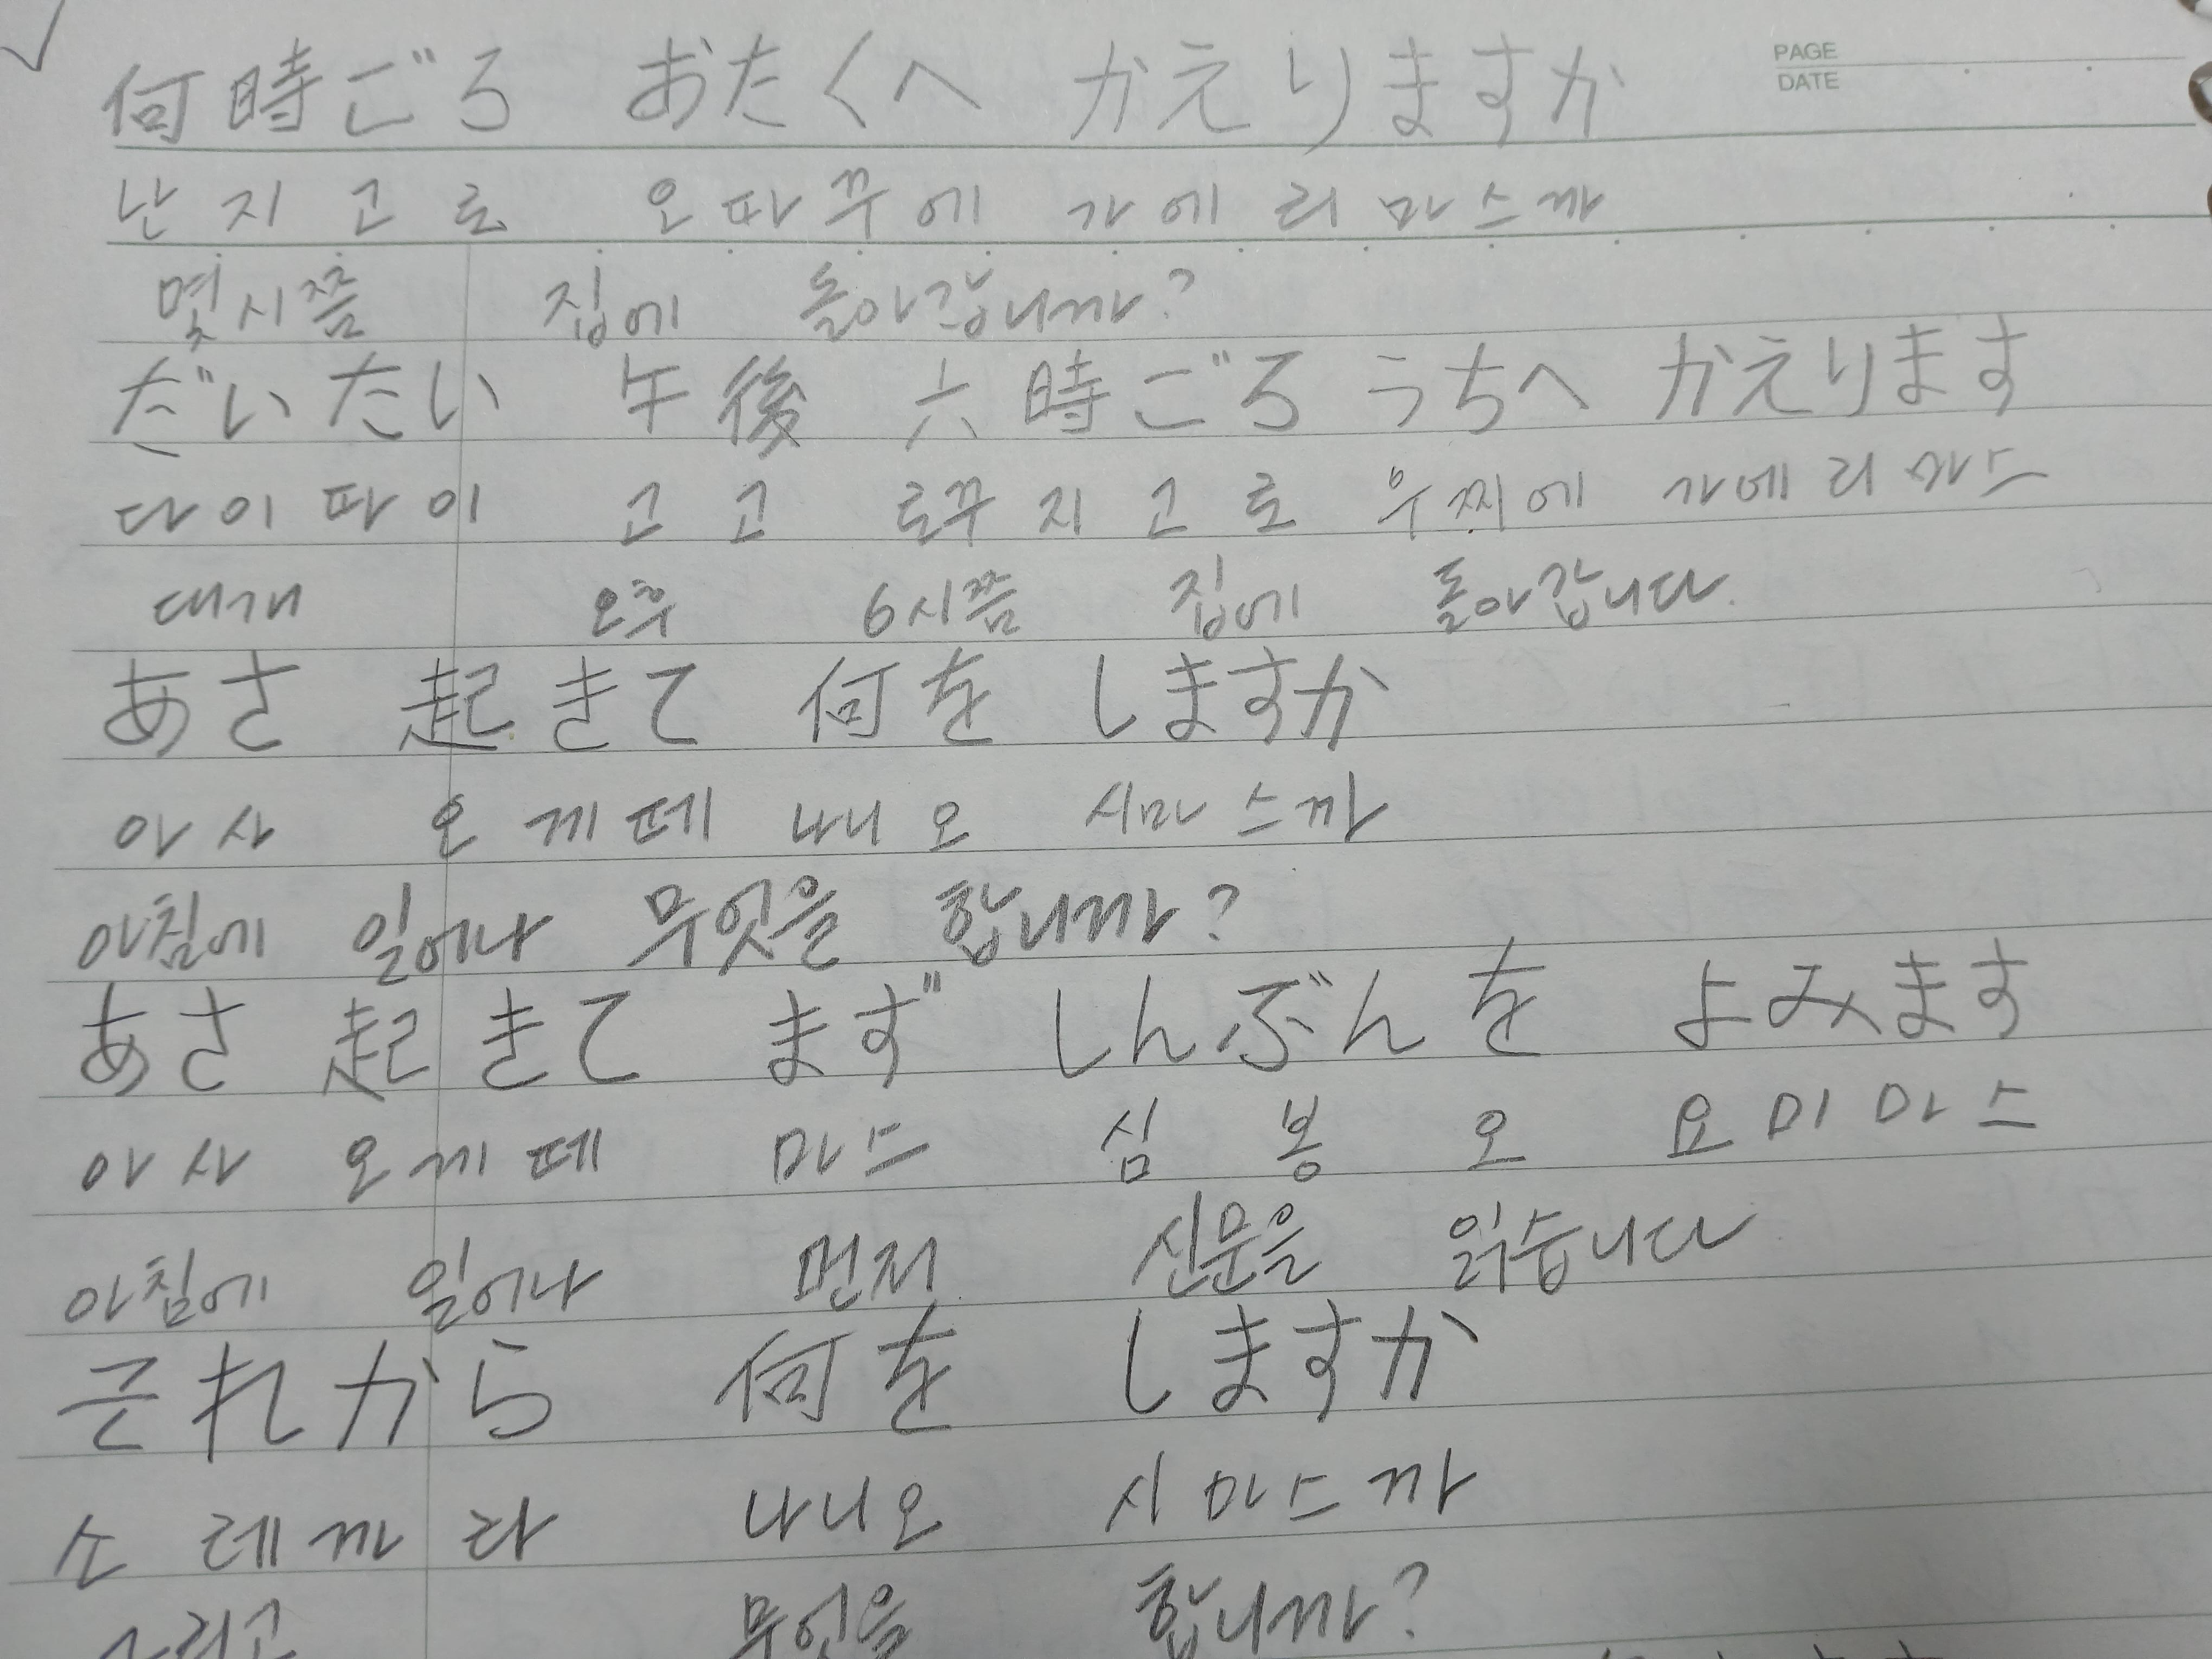 PAGE
DATE
何時ごろ おたくへ かえりますか
난지고로 오따꾸에 가에리마스까
몇시쯤 집에 돌아갑니까?
だいたい 午後 六時ごろ うちへ かえります
다이따이 고고 로꾸지고로 우찌에 가에리마스
대개 오후 6시쯤 집에 돌아갑니다.
あさ 起きて 何を しますか
아사 오께떼 나니오 시마스까
아침에 일어나 무엇을 합니까?
あさ 起きて まず しんぶんを よみます
아사 오께떼 마스 심붕오 요미마스
아침에 일어나 먼저 신문을 읽습니다
それから 何を しますか
소레까라 나니오 시마스까
그리고 무엇을 합니까?